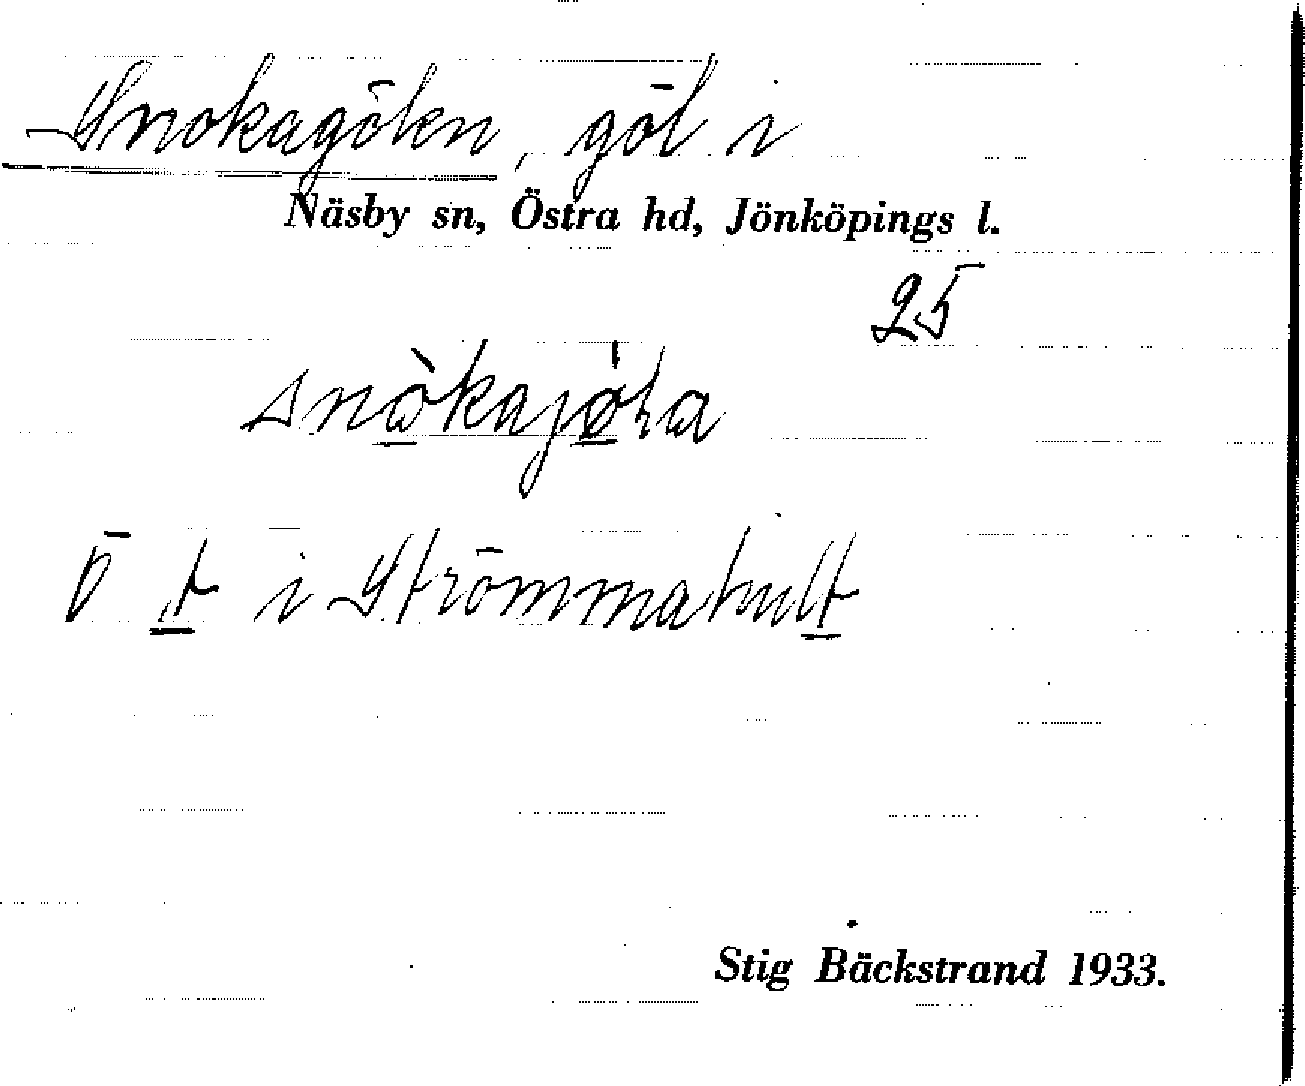 Snokagölen, göl i
Näsby sn, Östra hd, Jönköpings l.
25
snòkajø̀la
Ö t i Strömmahult
Stig Bäckstrand 1933.